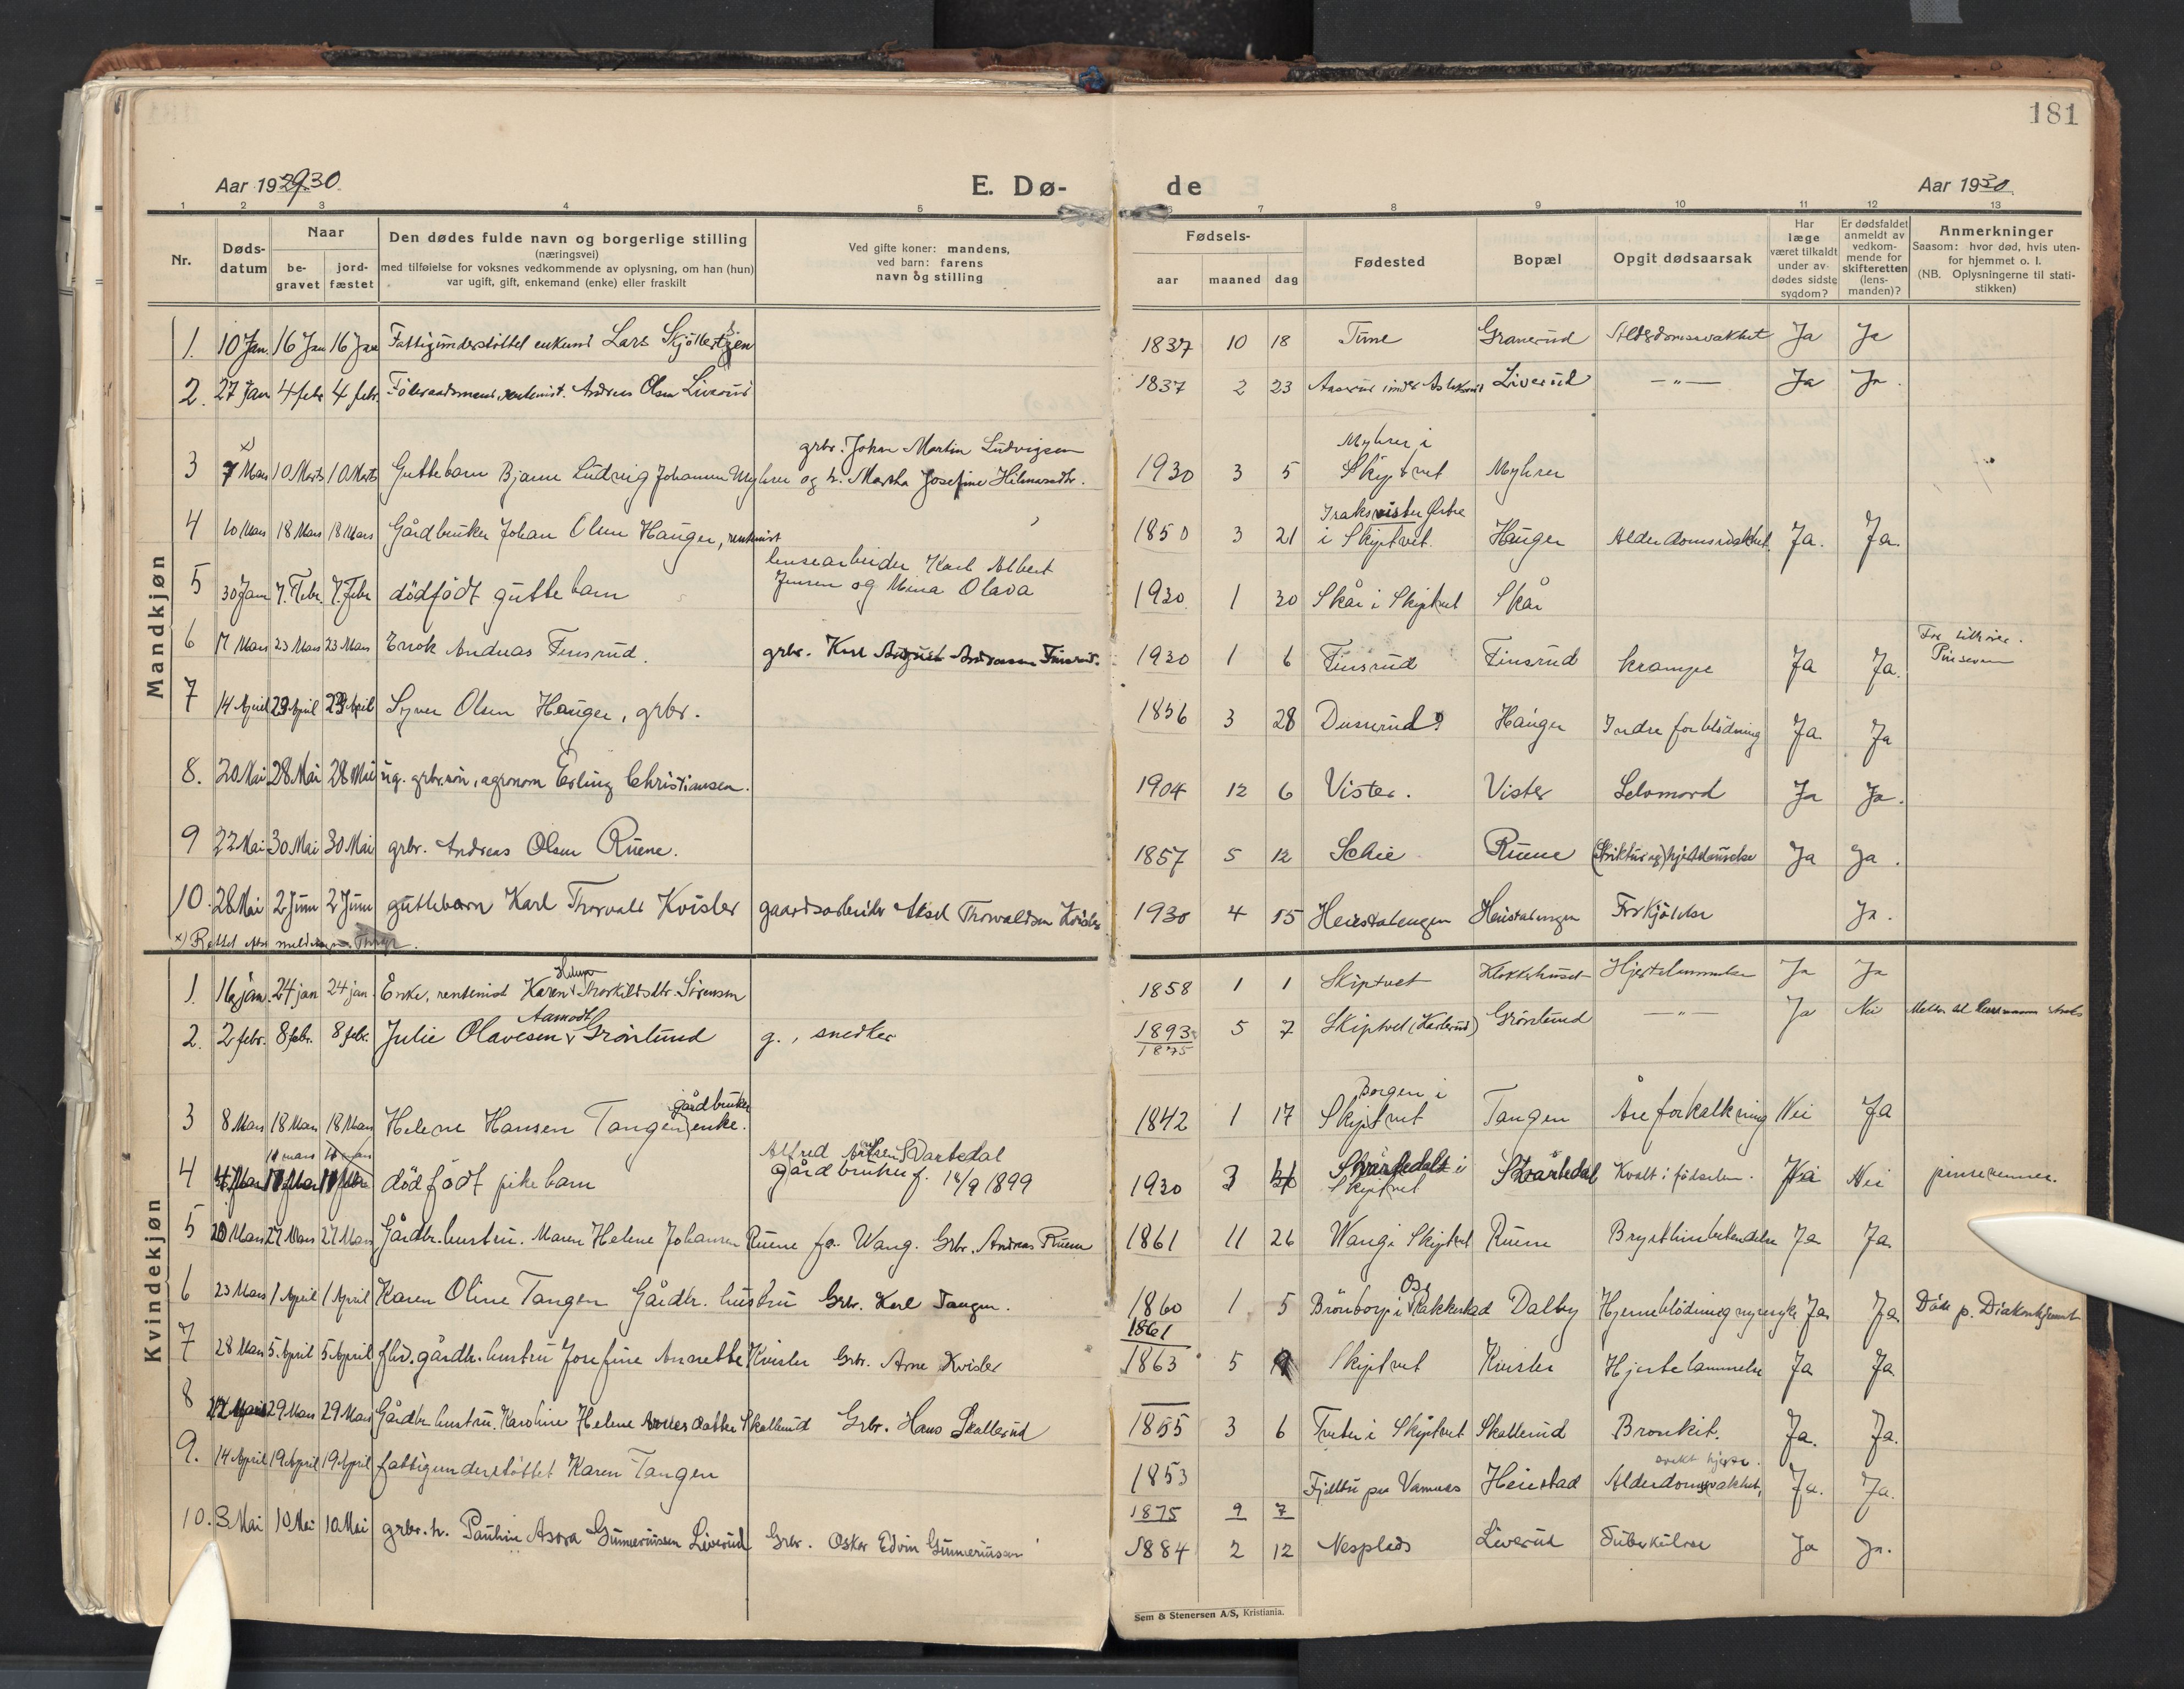 181
Aar 1929/30.
E. Dø-
de
Aar 1930
1 2 3 4 5 6 7 8 9 10 11 12 13
Nr.
Døds-
datum
Naar
be-
gravet
jord-
fæstet
Den dødes fulde navn og borgerlige stilling
(næringsvei)
med tilføielse for voksnes vedkommende av oplysning, om han (hun)
var ugift, gift, enkemand (enke) eller fraskilt
Ved gifte koner: mandens,
ved barn: farens
navn og stilling
Fødsels-
aar maaned dag
Fødested
Bopæl
Opgit dødsaarsak
Har
læge
været tilkaldt
under av-
dødes sidste
sygdom?
Er dødsfaldet
anmeldt av
vedkom-
mende for
skifteretten
(lens-
manden)?
Anmerkninger
Saasom: hvor død, hvis uten-
for hjemmet o. l.
(NB. Oplysningerne til stati-
stikken)
Mandkjøn
1. 10 Jan. 16 Jan 16 Jan Fattigunderstöttet enkem. Lars 1837 10 18 Tune Granerud Alderdomssvakhet Ja Ja
2. 27 Jan 4 febr 4 febr. Andreas Olsen Liverud 1837 2 23 Liverud —"— Ja Ja.
x)
grbr. Johan Martin Ludvigsen
Myhrer i
3 7 Mars 10 Marts 10 Marts Guttebarn Bjarne Ludvig Johansen Myhrer og h. Martha Josefine Hilmarsdtr. 1930 3 5 Skiptvet Myhrer
4 10 Mars 18 Mars 18 Mars Gårdbruker Johan Olsen Hauger, rentenist 1850 3 21 i Skiptvet. Hauger Alderdomssvakhet Ja. Ja.
lensearbeider Karl Albert
5 30 Jan 7. Febr. 7. Febr dödfödt guttebarn Jensen og Mina Olava 1930 1 30 Skår i Skiptvet Skår
6 17 Mars 23 Mars 23 Mars Enok Andreas Finsrud. grbr. Karl August Andreassen Finsrud. 1930 1 6 Finsrud Finsrud krampe Ja Ja.
7 14 April 23 April 23 April Syver Olsen Hauger, grbr. 1856 3 28 Dusserud? Hauger Indre forblödning Ja. Ja
8. 20 Mai 28 Mai 28 Mai ug. grbr.sön, agronom Erling Christiansen. 1904 12 6 Vister. Vister Selvmord Ja Ja.
9 22 Mai 30 Mai 30 Mai grbr. Andreas Olsen Ruene. 1857 5 12 Schie Ruene Ja Ja.
10. 28 Mai 2 Juni 2 Juni guttebarn Karl Thorvald Kvister gaardsarbeider Aksel Thorvaldsen Kvister 1930 4 15 Heistadengen Heistadengen Forkjölelse Ja.
x) Rettet efter
Kvindekjøn
Helene
1. 16 jan. 24 jan 24 jan. Enke, rentenist Karen Thorkildsdtr. Sörensen 1858 1 1 Skiptvet Klokkerhuset Hjertelammelse Ja Ja
Aamodt
2. 2 febr. 8 febr. 8 febr. Julie Olavesen Grönlund g., snedker 1893 5 7 Skiptvet (Karlsrud) Grönlund —"— Ja Nei
1875
gårdbruker
Borgen i
3 8 Mars 18 Mars 18 Mars Helene Hansen Tangen, enke. 1842 1 17 Skiptvet Tangen Åreforkalkning Nei Ja
Alfred Svartedal
4 dödfödt pikebarn gårdbruker f. 14/9 1899 1930 3 4 Svartedal i Skiptvet Svartedal Kvalt i födselen. Nei Nei pinsevenner.
5 20 Mars 27 Mars 27 Mars Gårdbr. hustru. Maren Helene Johansen Ruene fö. Wang. Grbr. Andreas Ruene 1861 11 26 Wang i Skiptvet Ruene Brysthinnebetendelse Ja Ja
6 23 Mars 1 April 1 April Karen Oline Tangen Gårdbr. hustru Grbr. Karl Tangen. 1860 1 5 Brönborg i Rakkestad Dalby Ja Ja Döde p. Diakonhjemmet
1861
7 28 Mars 5. April 5 April fhv. gårdbr. hustru Josefine Annette Kvister Grbr. Arne Kvister 1863 5 9 Skiptvet Kvister Hjertelammelse Ja Ja
8 22 Mars 29 Mars 29 Mars Gårdbr. hustru. Karoline Helene Skallerud Grbr. Hans Skallerud 1855 3 6 Tveter i Skiptvet Skallerud Bronkit. Ja. Ja.
svakt hjerte.
9. 14 April 19 April 19 April fattigunderstöttet Karen Tangen 1853 Heistad Alderdomssvakhet, Ja. Ja.
1875 9 7
10. 3 Mai 10 Mai 10 Mai grbr. h. Pauline Asora Gunneriussen Liverud Grbr. Oskar Edvin Gunneriussen 1884 2 12 Nesplads Liverud Tuberkulose Ja Ja.
Sem & Stenersen A/S, Kristiania.